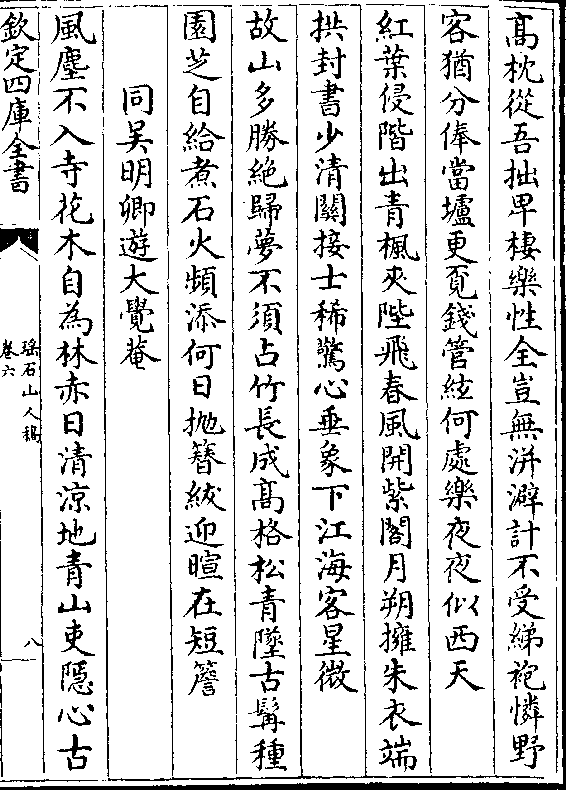 髙枕從吾拙卑棲樂性全豈無洴澼計不受綈袍憐野
客猶分俸當壚更覔錢管絃何處樂夜夜似西天
紅葉侵階出青楓夾陛飛春風開紫閣月朔擁朱衣端
拱封書少清闗接士稀驚心垂象下江海客星微
故山多勝絶歸夢不須占竹長成髙格松青墜古髯種
園芝自給煮石火頻添何日抛簪紱迎暄在短簷
同吴明卿遊大覺菴
風塵不入寺花木自為林赤日清凉地青山吏隱心古
欽定四庫全書
瑶石山人稿
卷六
八